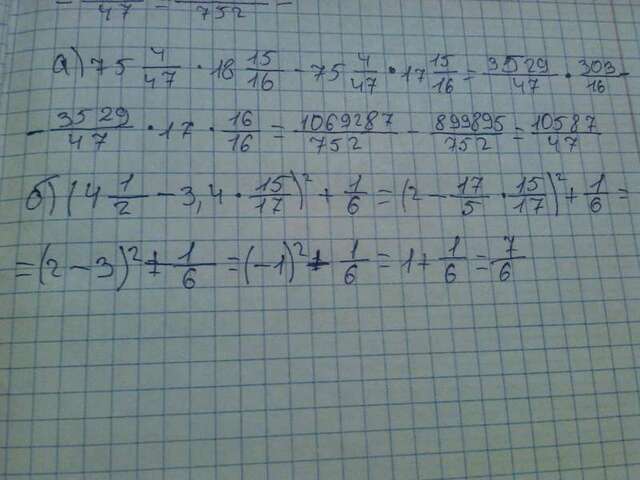 47 752
а) 75 4/47 · 18 15/16 - 75 4/47 · 17 15/16 = 3529/47 · 303/16 -
- 3529/47 · 17 · 16/16 = 1069287/752 - 899895/752 = 10587/47
б) (4 1/2 - 3,4 · 15/17)² + 1/6 = (2 - 17/5 · 15/17)² + 1/6 =
= (2 - 3)² + 1/6 = (-1)² + 1/6 = 1 + 1/6 = 7/6